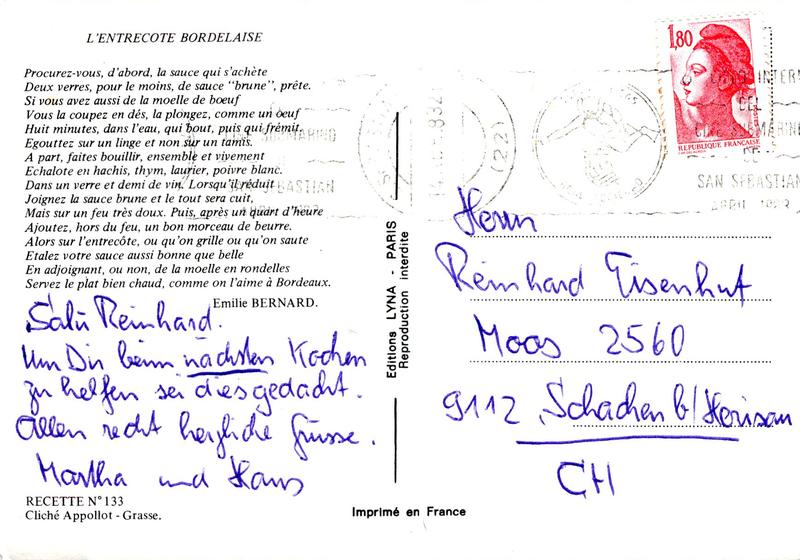 L'ENTRECOTE BORDELAISE
Procurez-vous, d'abord, la sauce qui s'achète
Deux verres, pour le moins, de sauce "brune", prête.
Si vous avez aussi de la moelle de boeuf
Vous la coupez en dés, la plongez, comme un oeuf
Huit minutes, dans l'eau, qui bout, puis qui frémit.
Egouttez sur un linge et non sur un tamis.
A part, faites bouillir, ensemble et vivement
Echalote en hachis, thym, laurier, poivre blanc.
Dans un verre et demi de vin. Lorsqu'il réduit
Joignez la sauce brune et le tout sera cuit,
Mais sur un feu très doux. Puis, après un quart d'heure
Ajoutez, hors du feu, un bon morceau de beurre.
Alors sur l'entrecôte, ou qu'on grille ou qu'on saute
Etalez votre sauce aussi bonne que belle
En adjoignant, ou non, de la moelle en rondelles
Servez le plat bien chaud, comme on l'aime à Bordeaux.
Emilie BERNARD.
Salü Reinhard.
Um Dir beim nächsten Kochen
zu helfen sei dies gedacht.
Allen recht herzliche Grüsse.
Martha und Hans
RECETTE N° 133
Cliché Appollot - Grasse.
Editions LYNA - PARIS
Reproduction interdite
Imprimé en France
1,80
REPUBLIQUE FRANÇAISE
(22)
DEL
DE
SAN SEBASTIAN
Herrn
Reinhard Eisenhut
Moos 2560
9112 Schachen b/Herisau
CH